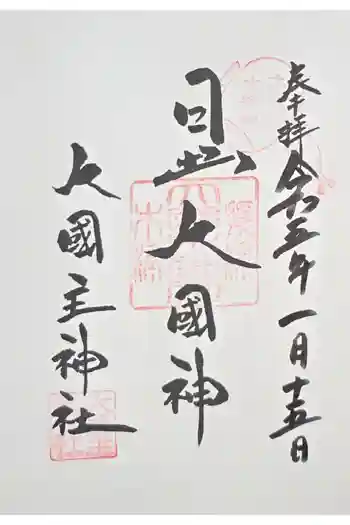 奉拝 令和五年 一月十五日
日出大國神
大國主神社